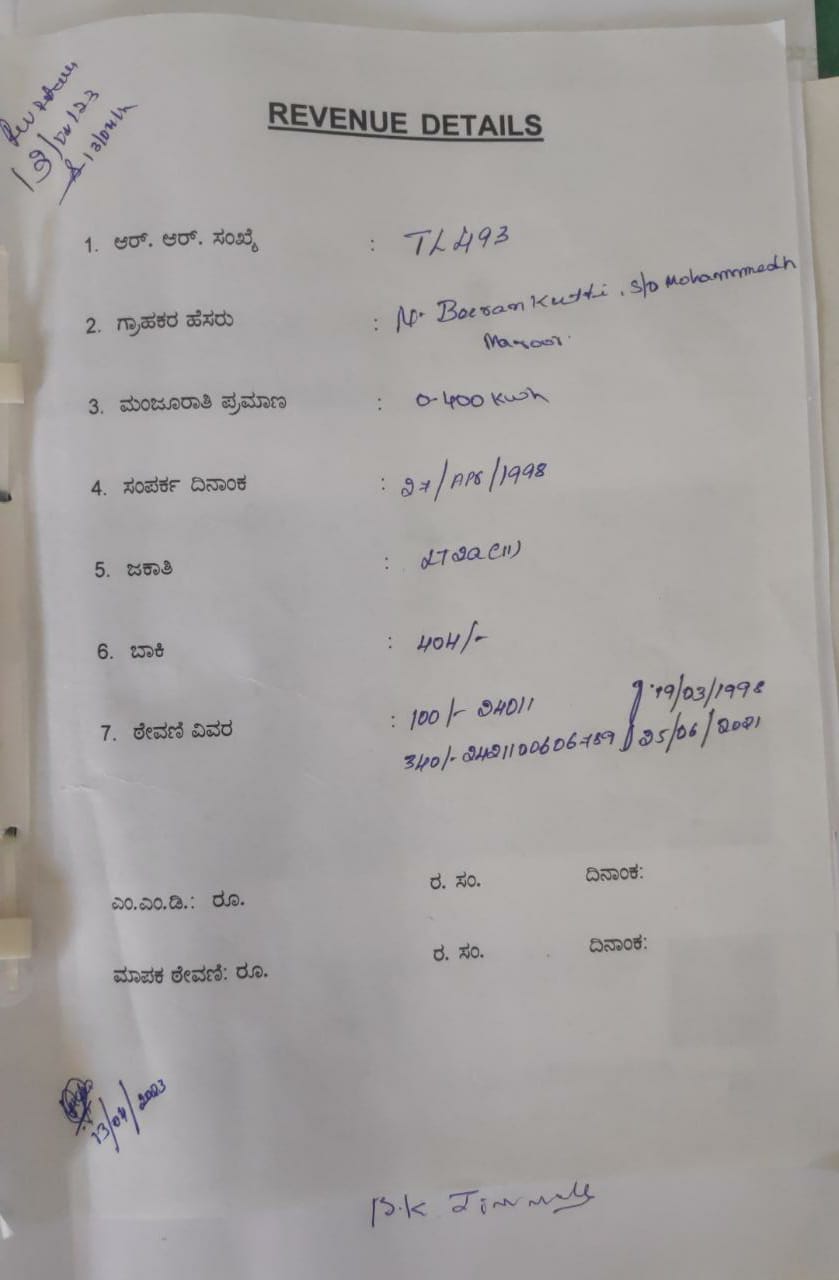 13/04/23
13/04/23
REVENUE DETAILS
1. ಆರ್. ಆರ್. ಸಂಖ್ಯೆ : TL493
2. ಗ್ರಾಹಕರ ಹೆಸರು : Boeran Kutti, S/o Mohammmedh
3. ಮಂಜೂರಾತಿ ಪ್ರಮಾಣ : 0-400 Kwh
4. ಸಂಪರ್ಕ ದಿನಾಂಕ : 27/Apr/1998
5. ಜಕಾತಿ : LT2a(ii)
6. ಬಾಕಿ : 404/-
7. ಠೇವಣಿ ವಿವರ : 100/- 24011 19/03/1998
340/- 2421100606789 25/06/2021
ಎಂ.ಎಂ.ಡಿ.: ರೂ. ರ. ಸಂ. ದಿನಾಂಕ:
ಮಾಪಕ ಠೇವಣಿ: ರೂ. ರ. ಸಂ. ದಿನಾಂಕ:
13/04/2023